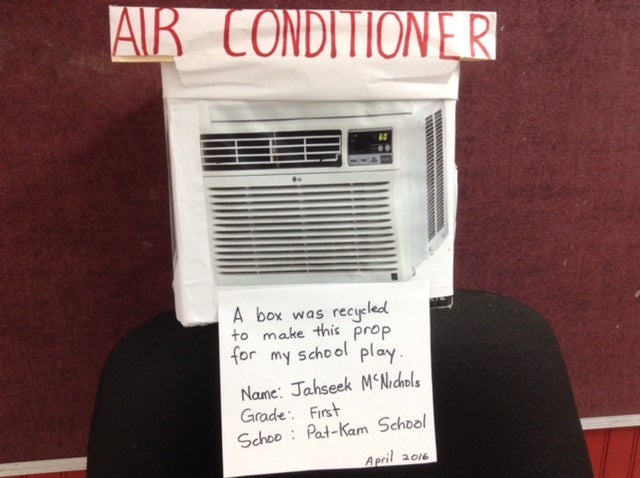 AIR CONDITIONER
60
LG
A box was recycled
to make this prop
for my school play.
Name: Jahseek McNichols
Grade: First
Schoo : Pat-Kam School
April 2016